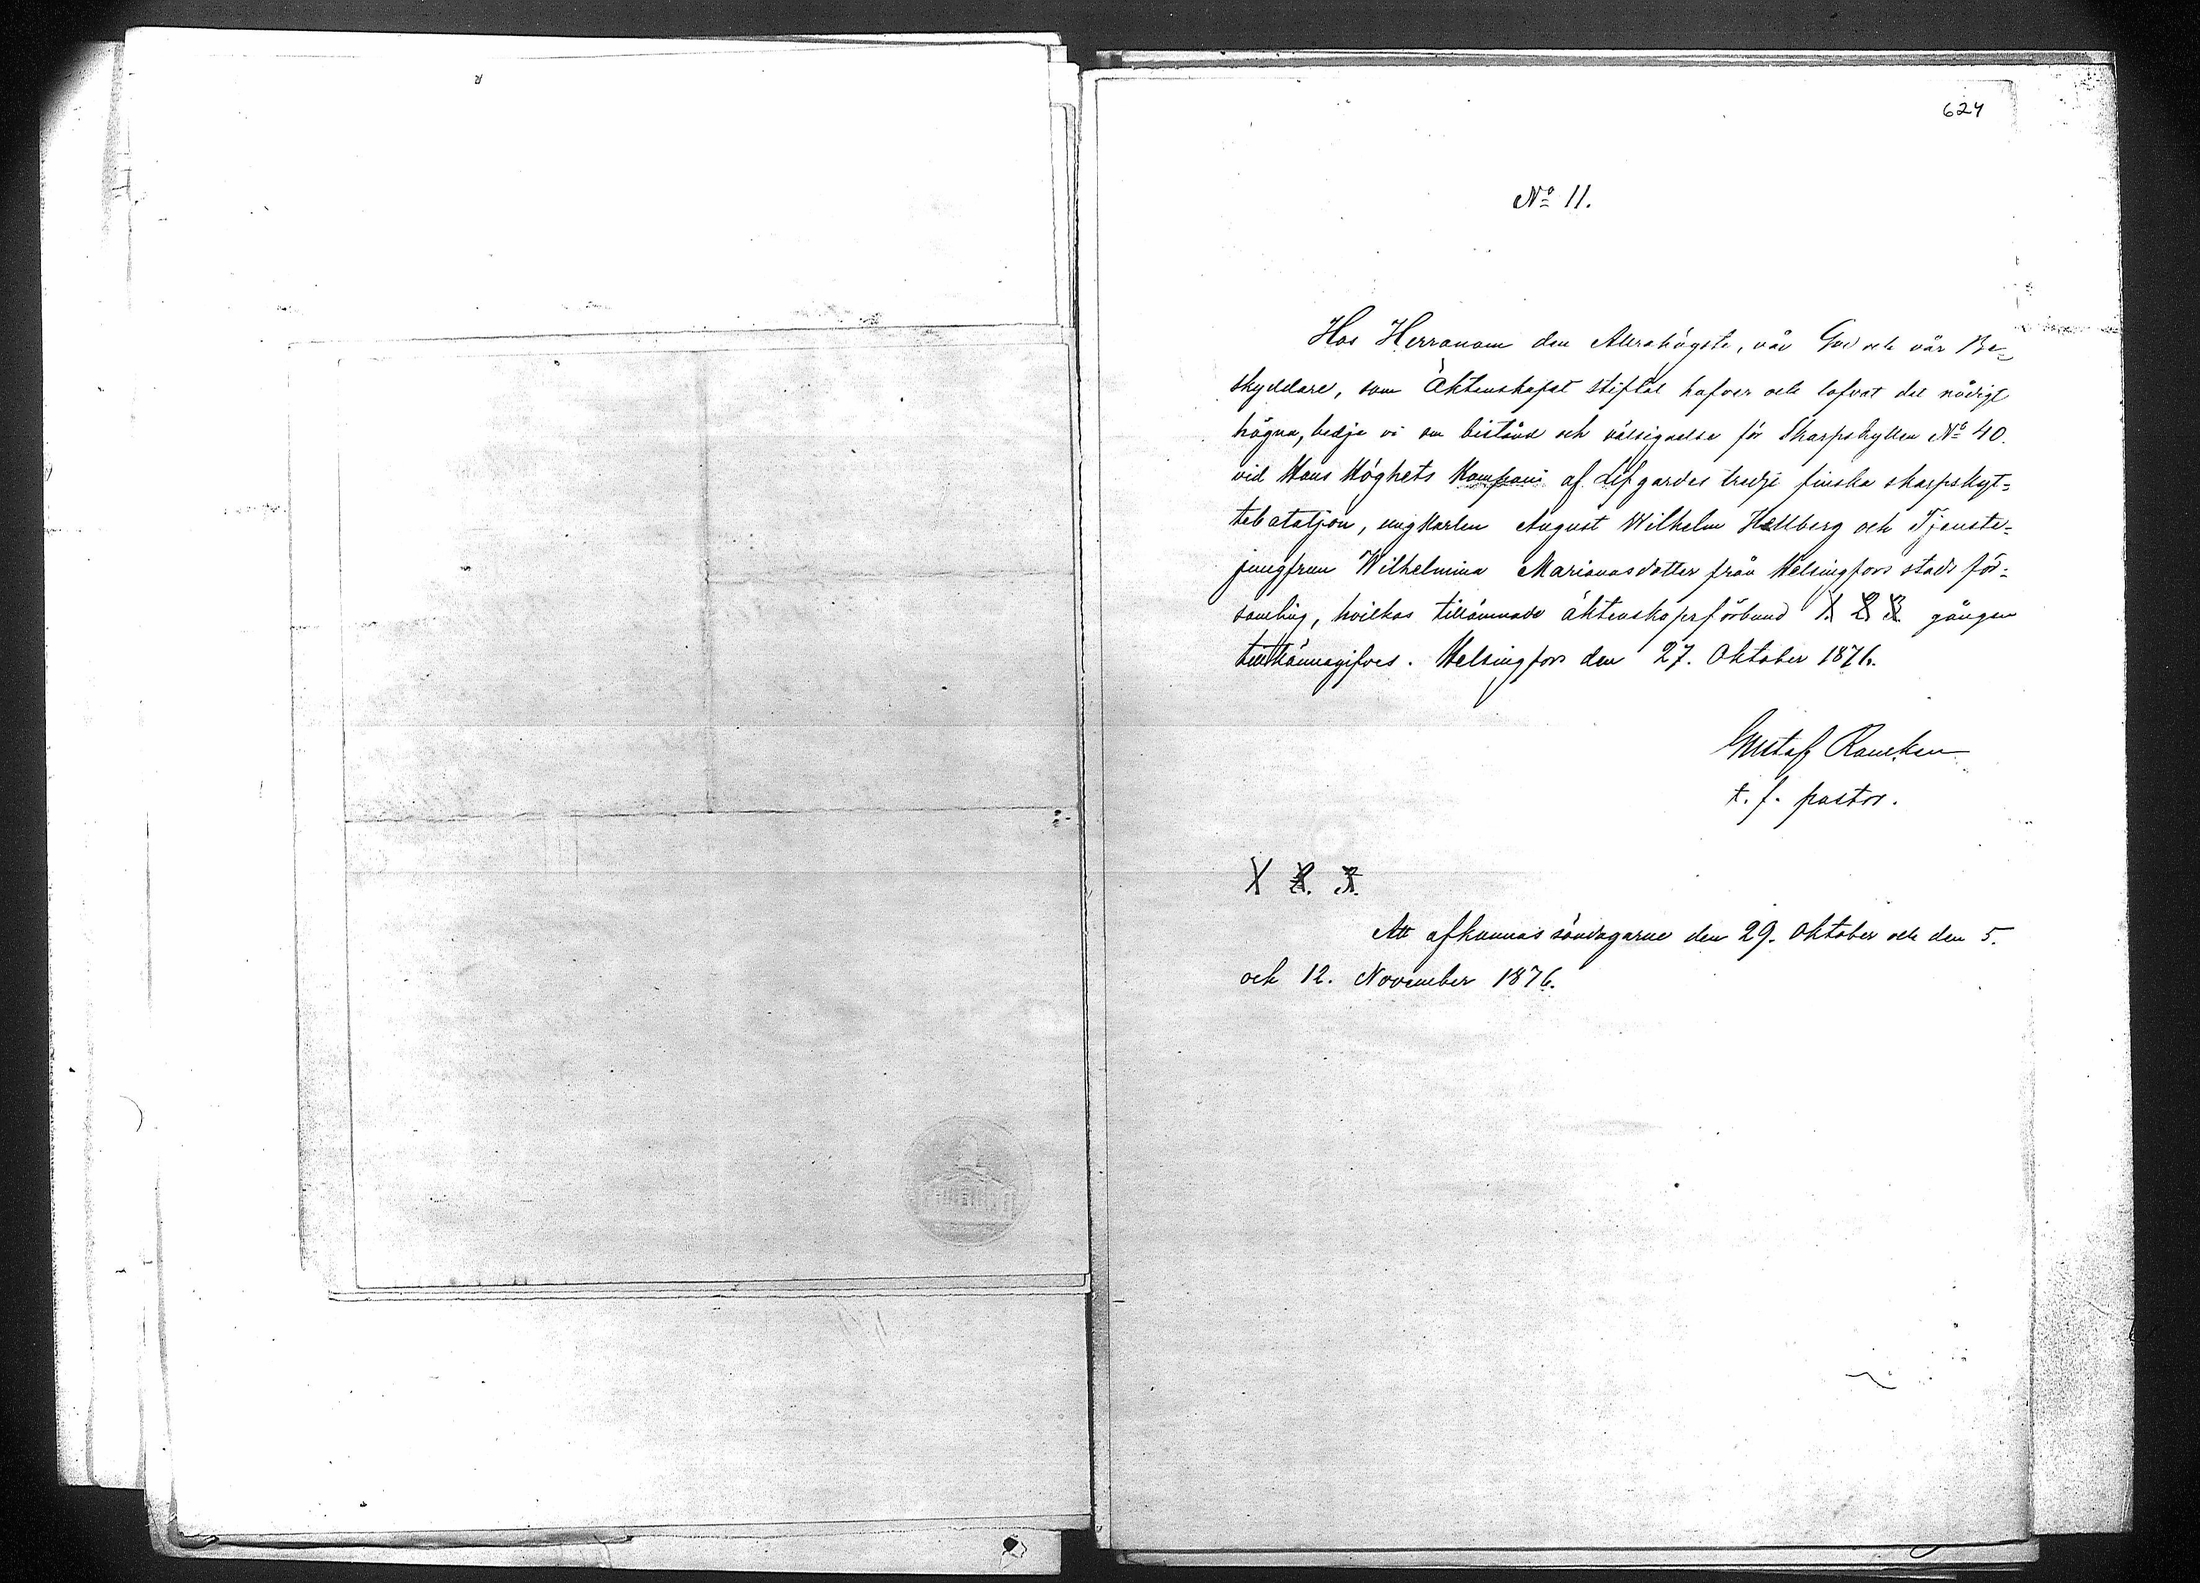 624
No 11.
Hos Herranom den Allrahögste, vår Gud och vår Be-
skyddare, som Äktenskapet stiftat hafver och lofvat det nådigt
hägna, bedja vi om bistånd och välsignelse för Skarpskytten No 40.
vid Hans Höghets Kompani af Lifgardes tredje finska skarpskyt-
tebataljon, ungkarlen August Wilhelm Hellberg och Tjenste-
jungfrun Wilhelmina Mariansdotter från Helsingfors stads för-
samling, hvilkas tillämnade äktenskapsförbund 1. 2. 3. gången
tillkännagifves. Helsingfors den 27. Oktober 1876.
Gustaf Rancken
t. f. pastor.
1. 2. 3.
Att afkunnas söndagarne den 29. Oktober och den 5.
och 12. November 1876.